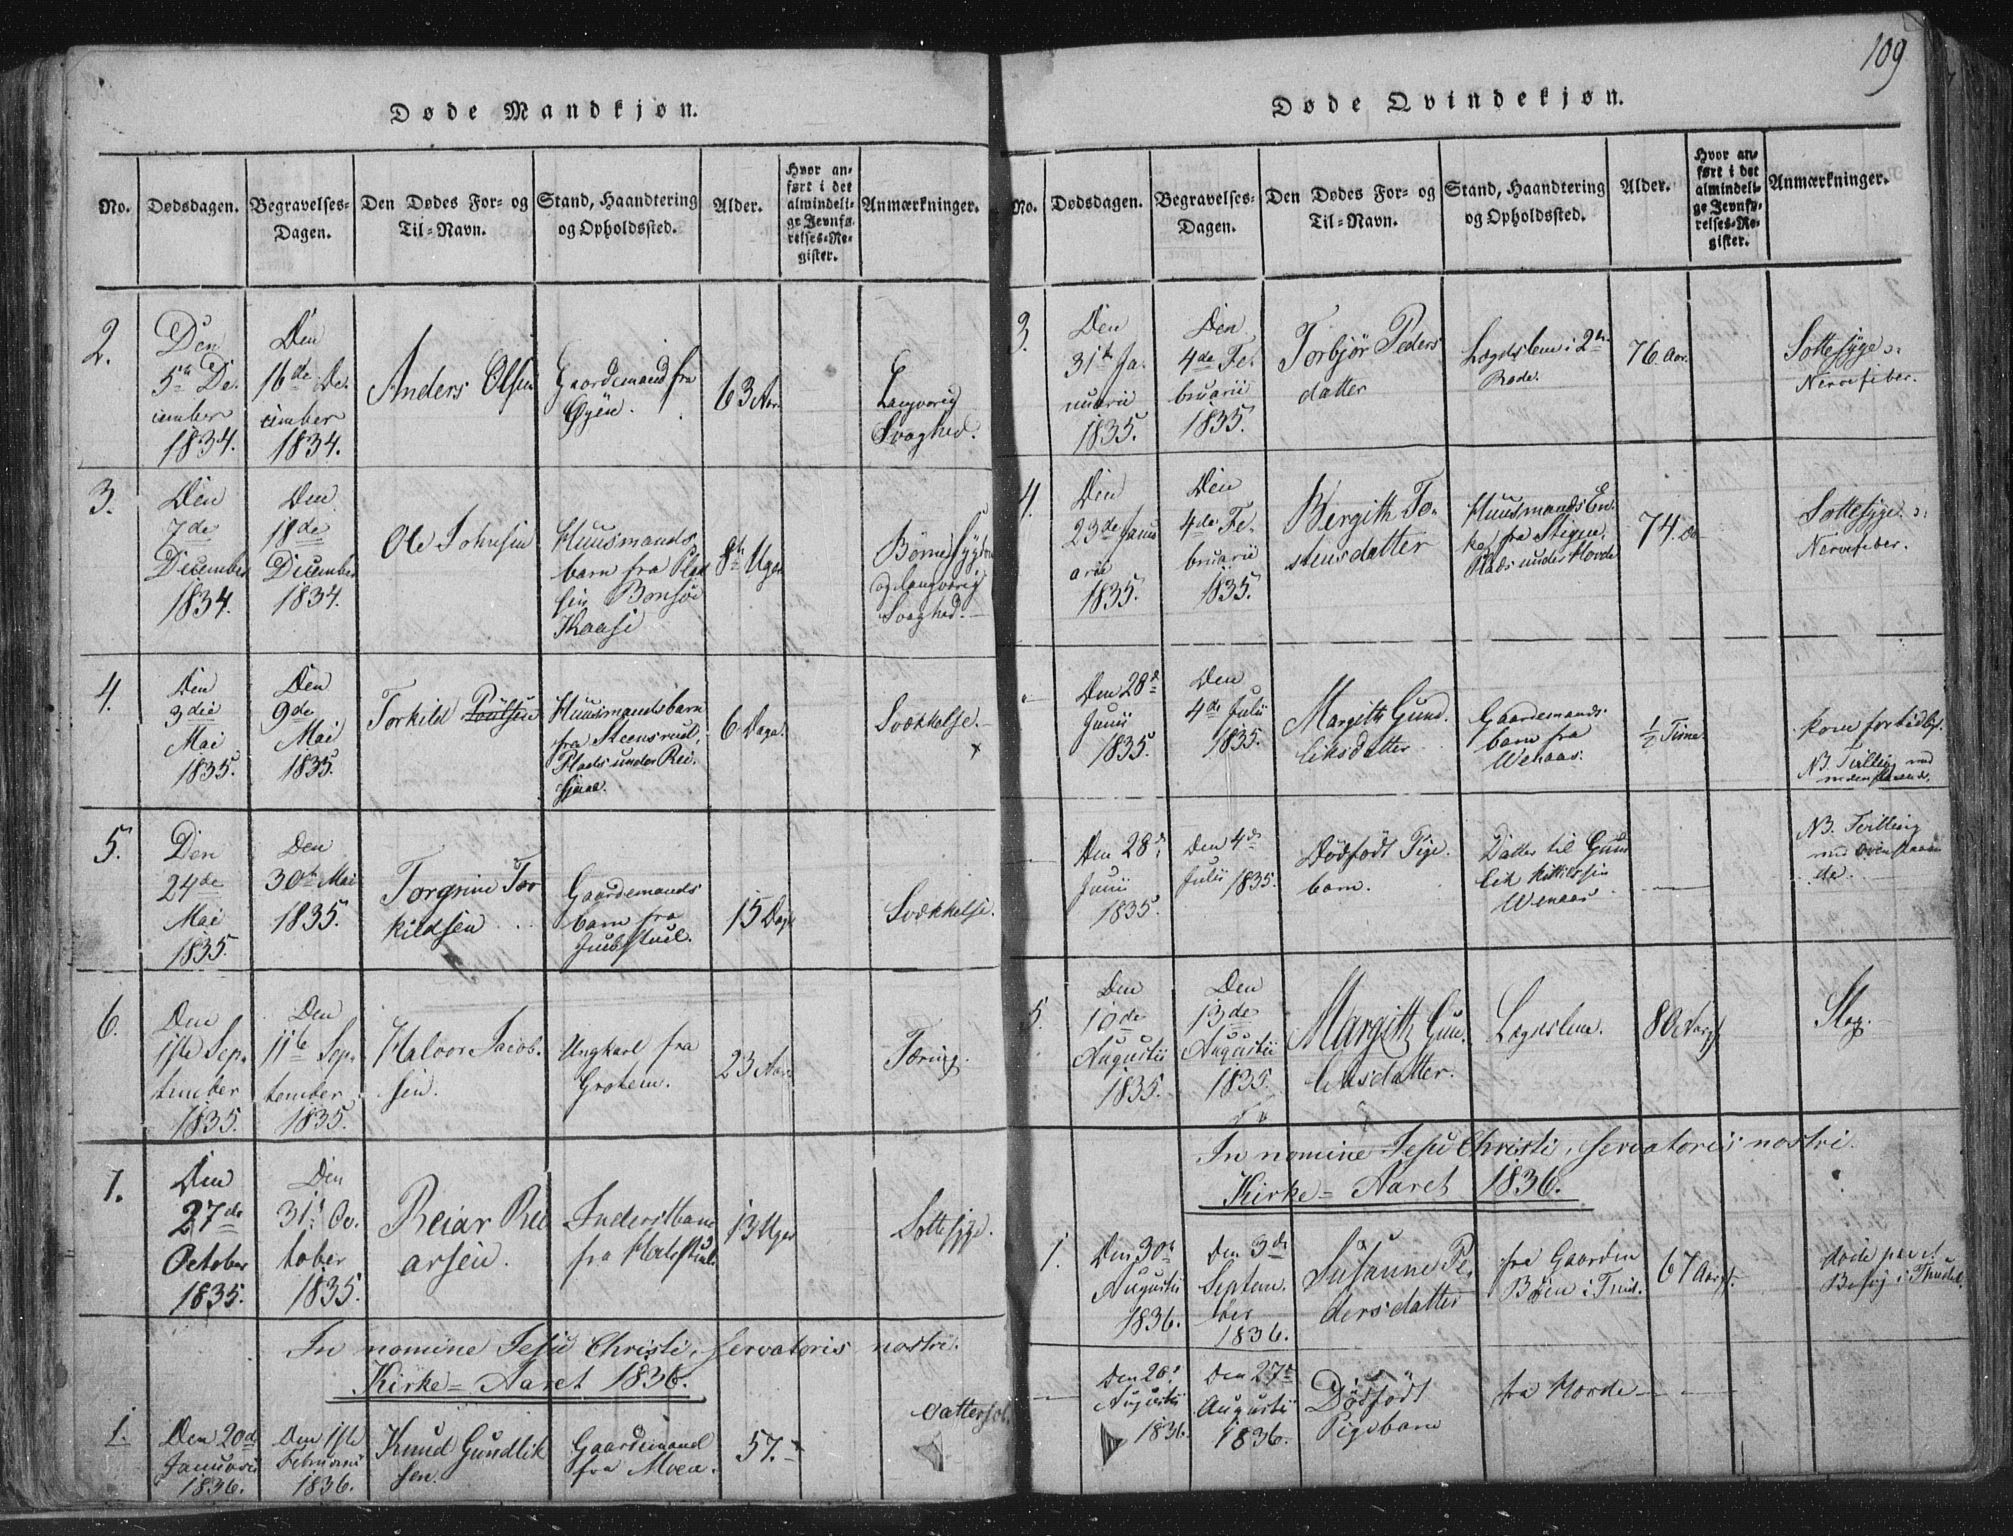 109
Døde Mandkjøn.
No. Dødsdagen. Begravelses-Dagen. Den Dødes For- og Til-Navn. Stand, Haandtering og Opholdssted. Alder. Hvor anført i det almindelige Jevnførelses-Register. Anmærkninger.
2.
Den
5te De-
cember
1834.
Den
16de De-
cember
1834.
Anders Olsen
Gaardemand fra
Øyen.
63 Aar
Langvarig
Svaghed.
3.
Den
7de
December
1834.
Den
18de
December
1834.
Ole Johnsen
Huusmands
barn fra Plad
sen
Kaasi
8te Uger
Børne
og langvarig
Svaghed.
4.
Den
3die
Mai
1835.
Den
9de
Mai
1835.
Torkild Poulsen
Huusmandsbarn
fra Steensrud,
Plads under Rei-
6 Dage.
Svækkelse.
5.
Den
24de
Mai
1835.
Den
30te Mai
1835.
Torgrine Tor
kildsen
Gaardemands
barn fra
15 Dage
Svækkelse.
6.
Den
1ste Sep-
tember
1835.
Den
11te Sep-
tember
1835.
Halvor Jacob-
sen.
Ungkarl fra
Grotem.
23 Aar
Tæring.
7.
Den
27de
October
1835.
Den
31te Oc-
tober
1835.
Reiar Rei
arsen.
Inderstbarn
fra
13 Uger
Sottesyge.
In nomine Jesu Christi, servatoris nostri.
Kirke-Aaret 1836.
1.
Den 20de
Januarii
1836.
Den 1ste
Februarii
1836.
Knud Gundlik
sen.
Gaardemand
fra Moen.
57.
Døde Qvindekjøn.
No. Dødsdagen. Begravelses-Dagen. Den Dødes For- og Til-Navn. Stand, Haandtering og Opholdssted. Alder. Hvor anført i det almindelige Jevnførelses-Register. Anmærkninger.
3.
Den
31te Ja-
nuarii
1835.
Den
4de Fe-
bruarii
1835.
Torbjør Peders
datter
Lægdslem i 2den
Rode.
76 Aar.
Sottesyge
Nervefeber.
4.
Den
23de Janu
arii
1835.
Den
4de Fe-
bruarii
1835.
Bergith To-
stensdatter
Huusmands En-
ke fra Stigen,
Plads under Hovde
74. do
Sottesyge
Nervefeber.
Den 28de
Junii
1835.
Den
4de Julii
1835.
Margith Gund-
liksdatter
Gaardemands-
barn fra
Wehaas.
1/2 Time
kom for tidlig.
NB. Tvilling med
nedenstaaende.
Den 28de
Junii
1835.
Den 4de
Julii 1835.
Dødfødt Pige-
barn.
Datter til Gund
lik Kittilsen
Wehaas
NB. Tvilling
med ovenstaaen
de.
5.
Den
10de
Augustii
1835.
Den
13de
Augustii
1835.
Margith Gun-
leksdatter.
Lægdslem.
80 Aar
Slag.
In nomine Jesu Christi, servatoris nostri.
Kirke-Aaret 1836.
1.
Den 30te
Augustii
1836.
Den 3de
Septem-
ber
1836.
Susanne Pe-
dersdatter
fra Gaarden
Bøen i Tuid.
67 Aar
døde paa et
Besøg i
Den 20de
Augustii
1836.
Den 27de
Augustii
1836.
Dødfødt
Pigebarn
fra Hovde